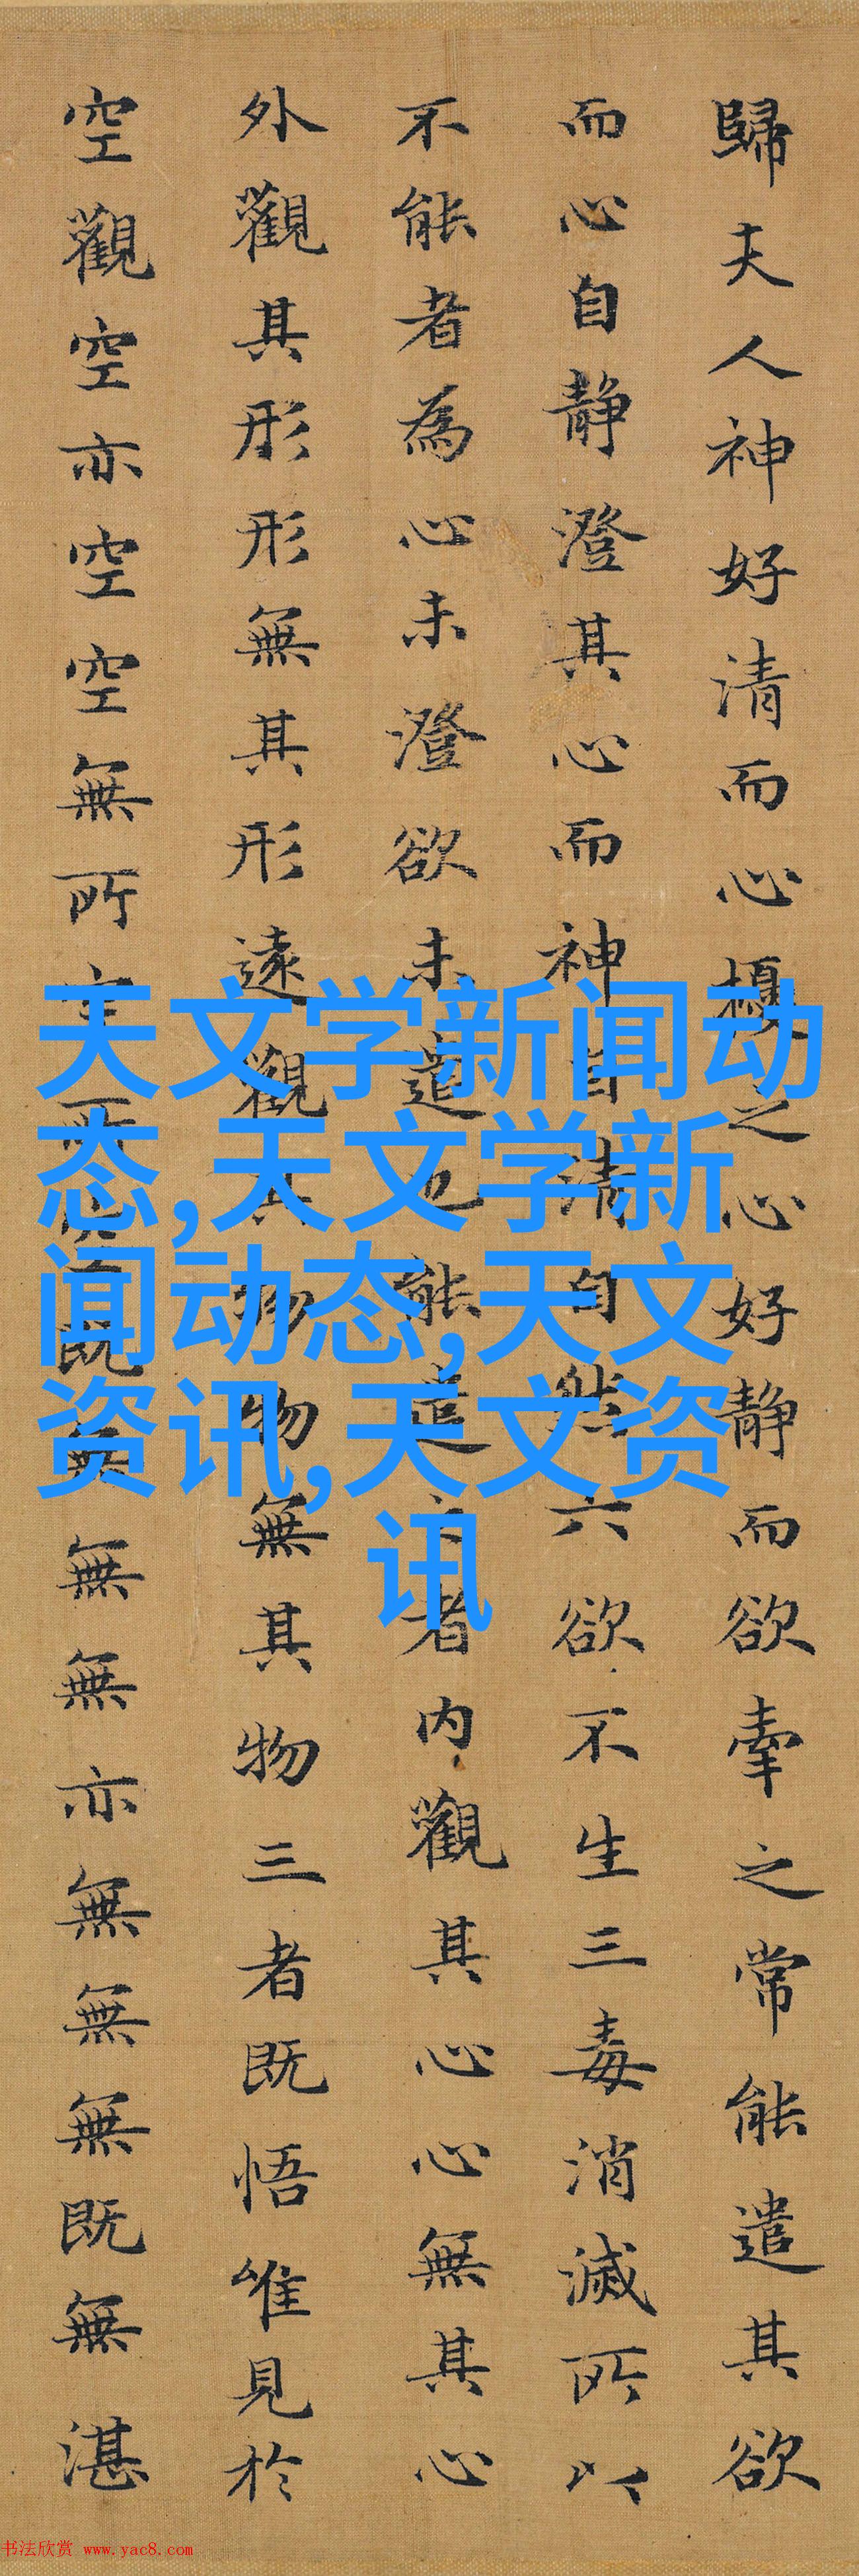 歸夫人神好清而心擾之心好靜而欲牽之常能遣其欲
而心自靜澄其心而神自清自然六欲不生三毒消滅所以
不能者為心未澄欲未遣也能遣之者内觀其心心無其心
外觀其形形無其形遠觀其物物無其物三者既悟唯見於
空觀空亦空空無所空所空既無無無亦無無無既無湛
天文学新闻动
态,天文学新
闻动态,天文
资讯,天文资
讯
书法欣赏 www.yac8.com